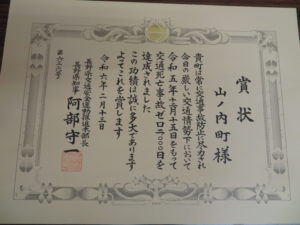 賞状
山ノ内町様
貴町は常に交通事故防止に尽力され
今日の厳しい交通情勢下において
令和五年十二月十五日をもって
交通死亡事故ゼロ二〇〇〇日を
達成されました
この功績は誠に多大であります
よってこれを賞します
令和六年二月十三日
長野県交通安全運動推進本部長
長野県知事 阿部守一